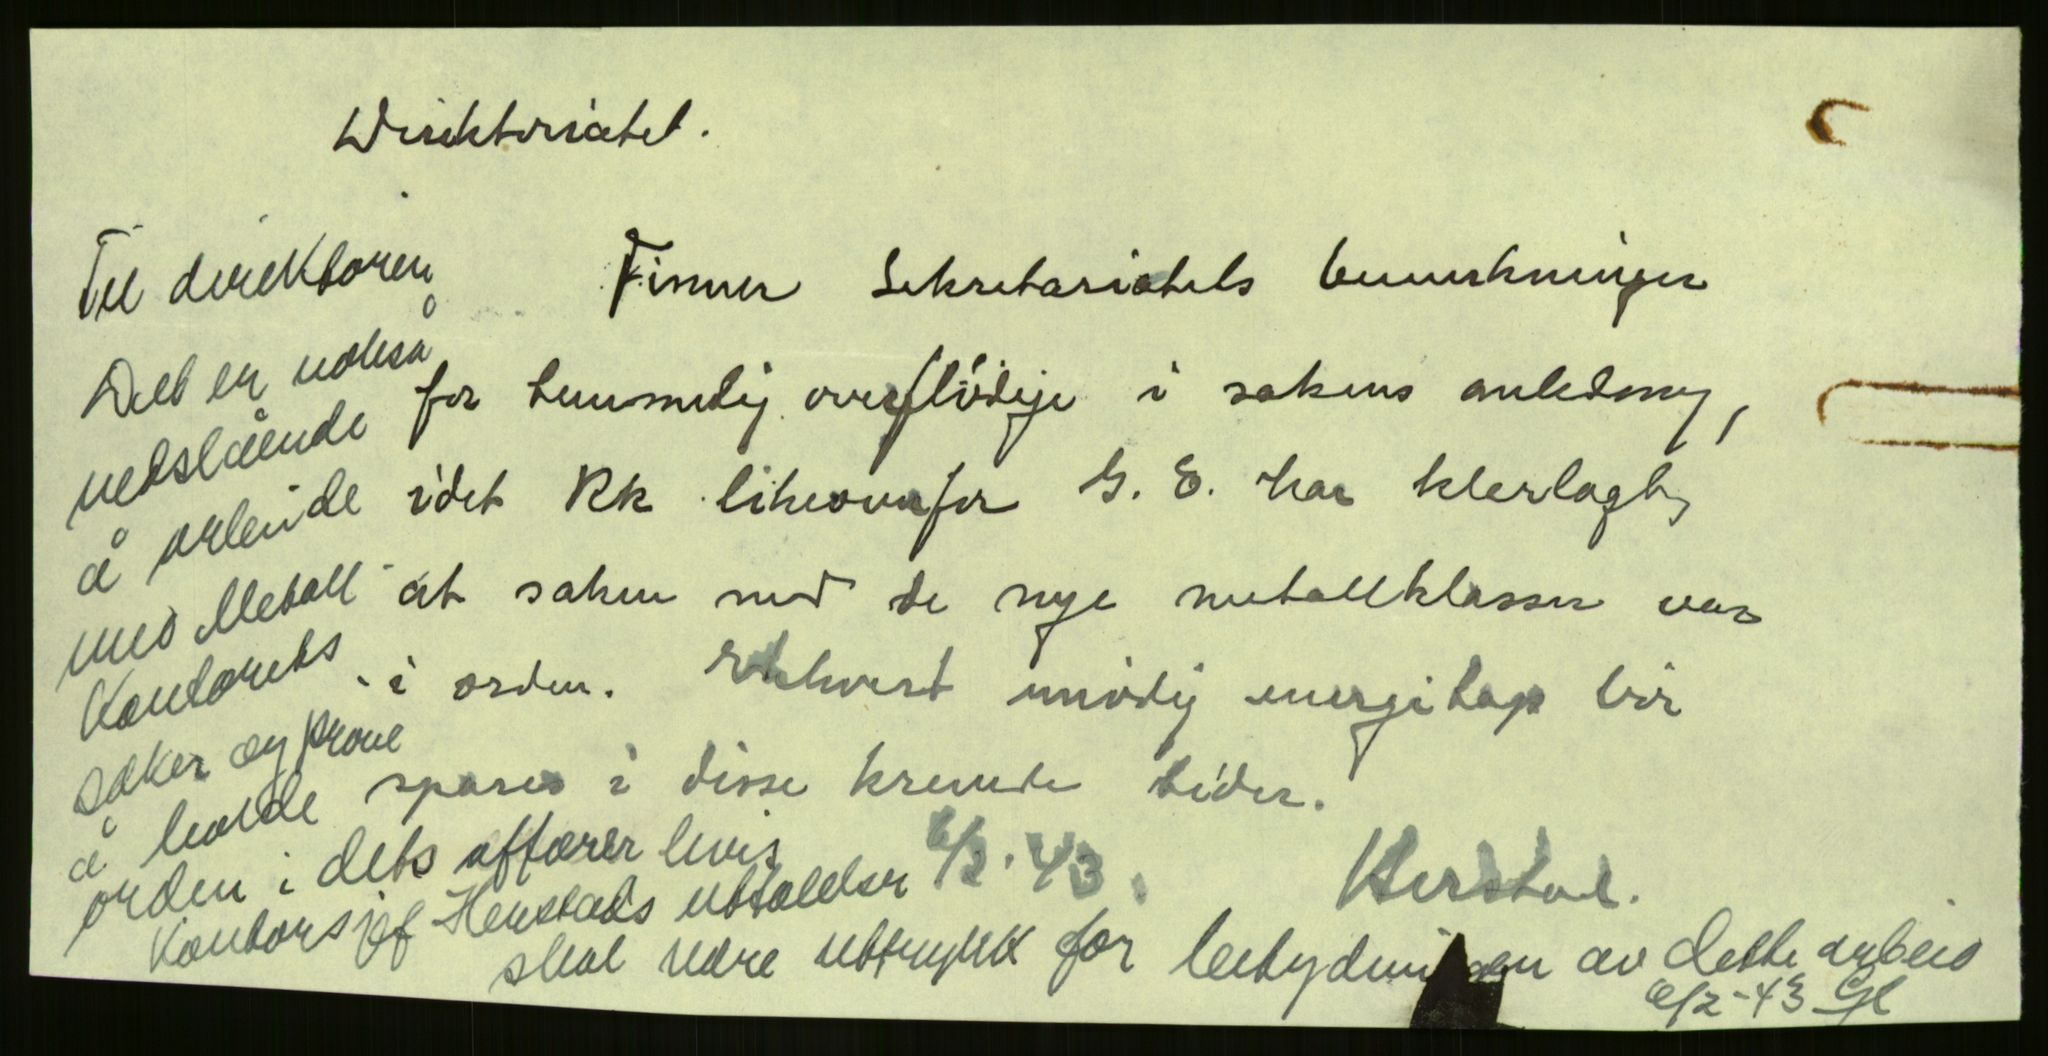 Direktoriatet.
Finner Sekretariatets bemerkninger
for temmelig overflödige i sakens anledning,
idet Rk likeovenfor G. E. har klarlagt,
at saken med de nye metallklasser var
i orden. Ethvert unödig energitap bör
spares i disse krevende tider.
6/2.43. Herstad.
Til direktøren
Det er nokså
nedslående
å arbeide
med Metall-
Kontorets
saker og prøve
å holde
orden i dets affærer hvis
Kontorsjef Herstads uttalelser
skal være uttrykk for betydningen av dette arbeid
6/2-43 Gl